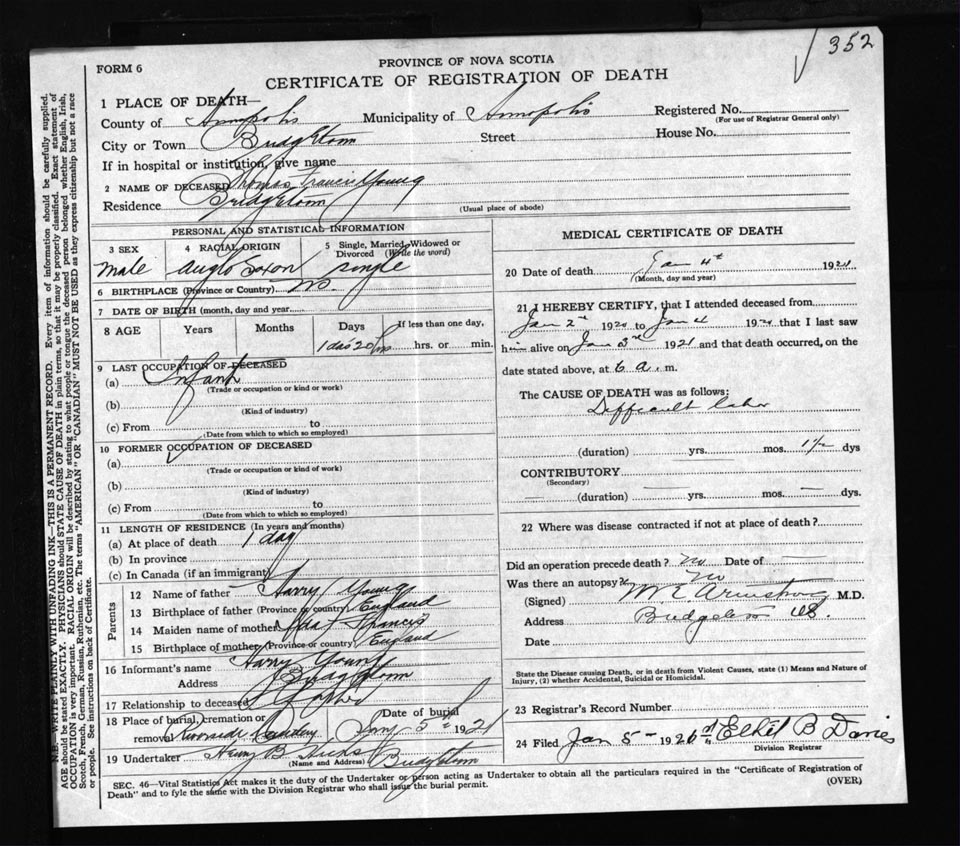 352
PROVINCE OF NOVA SCOTIA
FORM 6
CERTIFICATE OF REGISTRATION OF DEATH
1 PLACE OF DEATH—
County of Annapolis Municipality of Annapolis Registered No.
(For use of Registrar General only)
City or Town Bridgetown Street House No.
If in hospital or institution, give name
2 NAME OF DECEASED Thomas Francis Young
Residence Bridgetown
(Usual place of abode)
PERSONAL AND STATISTICAL INFORMATION
3 SEX 4 RACIAL ORIGIN 5 Single, Married, Widowed or Divorced (Write the word)
male Anglo Saxon single
6 BIRTHPLACE (Province or Country)
7 DATE OF BIRTH (month, day and year
8 AGE Years Months Days If less than one day,
1 hrs. or min.
9 LAST OCCUPATION OF DECEASED
(a) Infant
(Trade or occupation or kind or work)
(b)
(Kind of industry)
(c) From to
(Date from which to which so employed)
10 FORMER OCCUPATION OF DECEASED
(a)
(Trade or occupation or kind of work)
(b)
(Kind of industry)
(c) From to
(Date from which to which so employed)
11 LENGTH OF RESIDENCE (In years and months)
(a) At place of death 1 day
(b) In province
(c) In Canada (if an immigrant)
Parents
12 Name of father Harry Young
13 Birthplace of father (Province or country) England
14 Maiden name of mother Francis
15 Birthplace of mother (Province or country) England
16 Informant's name Harry Young
Address Bridgetown
17 Relationship to deceased
18 Place of burial, cremation or removal Riverside Date of burial Jan 5th 1921
19 Undertaker B. Hicks Bridgetown
(Name and Address)
MEDICAL CERTIFICATE OF DEATH
20 Date of death Jan 4th 1921
(Month, day and year)
21 I HEREBY CERTIFY, that I attended deceased from
Jan 2nd 192 to Jan 4 192 that I last saw
him alive on Jan 3rd 1921 and that death occurred, on the
date stated above, at 6 a. m.
The CAUSE OF DEATH was as follows:
Difficult labor
(duration) yrs. mos. 1½ dys
CONTRIBUTORY
(Secondary)
(duration) yrs. mos. dys.
22 Where was disease contracted if not at place of death?
Did an operation precede death? no Date of
Was there an autopsy? no
(Signed) Armstrong M.D.
Address Bridgetown NS.
Date
State the Disease causing Death, or in death from Violent Causes, state (1) Means and Nature of
Injury, (2) whether Accidental, Suicidal or Homicidal.
23 Registrar's Record Number
24 Filed Jan 5th 192 B Davies
Division Registrar
SEC. 46—Vital Statistics Act makes it the duty of the Undertaker or person acting as Undertaker to obtain all the particulars required in the "Certificate of Registration of
Death" and to fyle the same with the Division Registrar who shall issue the burial permit.
(OVER)
N.B. WRITE PLAINLY WITH UNFADING INK—THIS IS A PERMANENT RECORD. Every item of information should be carefully supplied.
AGE should be stated EXACTLY. PHYSICIANS should STATE CAUSE OF DEATH in plain terms, so that it may be properly classified. Exact statement of
OCCUPATION is very important. RACIAL ORIGIN will be described by stating to what people or tongue the deceased person belonged whether English, Irish,
Scotch, French, German, Russian, Ruthenian, etc. The terms "AMERICAN" OR "CANADIAN" MUST NOT BE USED as they express citizenship but not a race
or people. See instructions on back of Certificate.